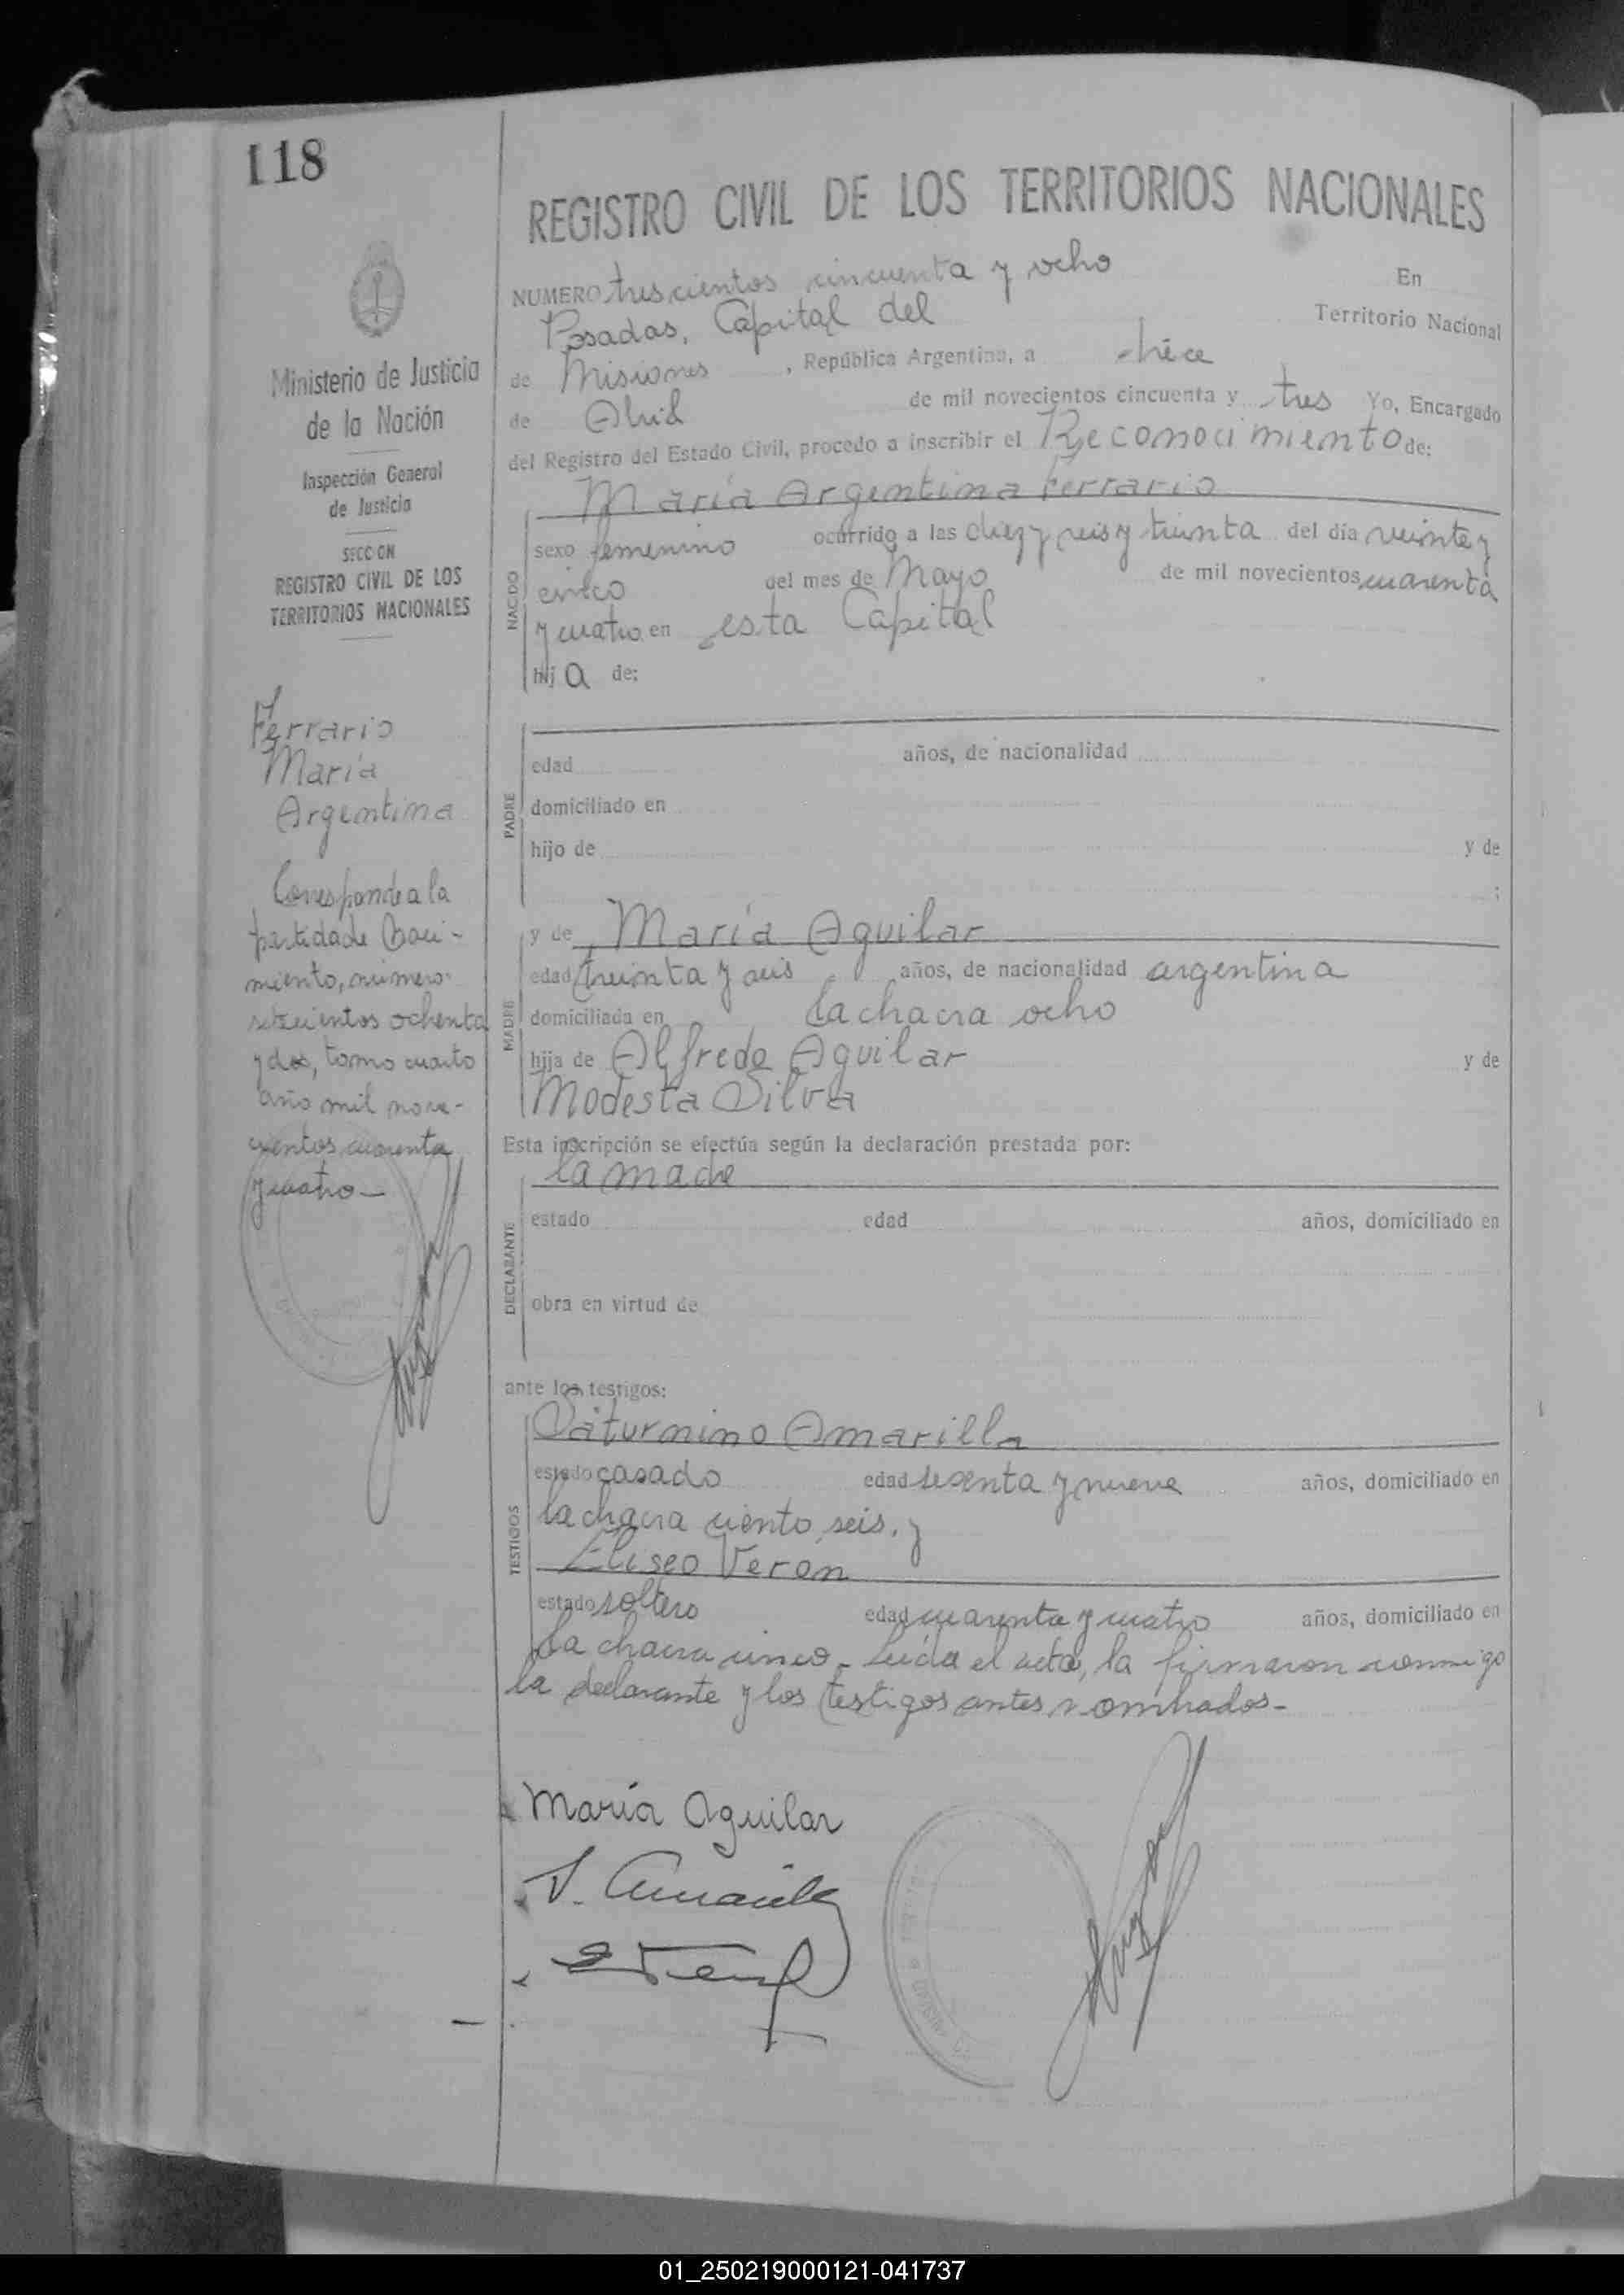 118
REGISTRO CIVIL DE LOS TERRITORIOS NACIONALES
NUMERO trescientos cincuenta y ocho En
Posadas, Capital del Territorio Nacional
de Misiones, República Argentina, a trece
de Abril de mil novecientos cincuenta y tres Yo, Encargado
del Registro del Estado Civil, procedo a inscribir el Reconocimiento de:
María Argentina Ferrario
NACIDO
sexo femenino ocurrido a las diez y seis y treinta del día veinte y
cinco del mes de Mayo de mil novecientos cuarenta
y cuatro en esta Capital
hij a de:
PADRE
edad años, de nacionalidad
domiciliado en
hijo de y de
;
MADRE
y de María Aguilar
edad treinta y seis años, de nacionalidad argentina
domiciliada en la chacra ocho
hija de Alfredo Aguilar y de
Modesta Silva
Esta inscripción se efectúa según la declaración prestada por:
la madre
DECLARANTE
estado edad años, domiciliado en
obra en virtud de
ante los testigos:
TESTIGOS
Saturnino Amarilla
estado casado edad sesenta y nueve años, domiciliado en
la chacra ciento seis, y
Eliseo Verón
estado soltero edad cuarenta y cuatro años, domiciliado en
la chacra cinco - Leída el acta, la firmaron conmigo
la declarante y los testigos antes nombrados -
María Aguilar
S. Amarilla
Ministerio de Justicia
de la Nación
Inspección General
de Justicia
SECCION
REGISTRO CIVIL DE LOS
TERRITORIOS NACIONALES
Ferrario
María
Argentina
Corresponde a la
partida de Naci-
miento, número
setecientos ochenta
y dos, tomo cuarto
año mil nove-
cientos cuarenta
y cuatro -
01_250219000121-041737